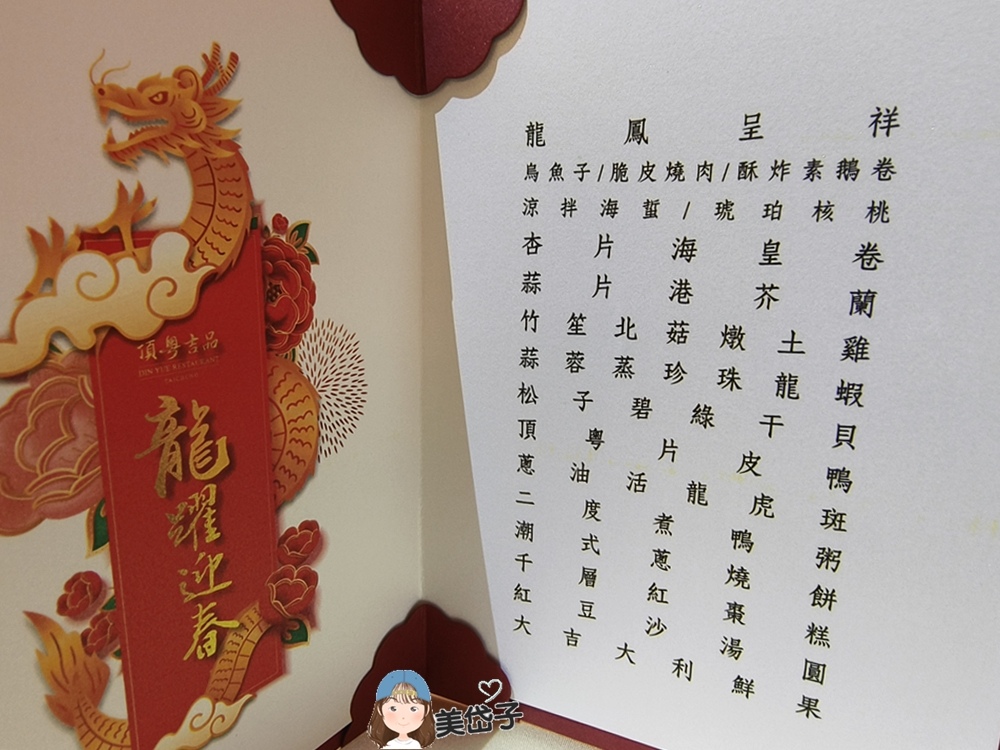 頂粵吉品
DIN YUE RESTAURANT
龍躍迎春
龍鳳呈祥
烏魚子/脆皮燒肉/酥炸素鵝卷
涼拌海蜇/琥珀核桃
杏片海皇卷
蒜片港芥蘭
竹笙北菇燉土雞
蒜蓉蒸珍珠龍蝦
松子碧綠干貝
頂粵片皮鴨
蔥油活龍虎斑
二度煮鴨粥
潮式蔥燒餅
千層紅棗糕
紅豆沙湯圓
大吉大利鮮果
美岱子